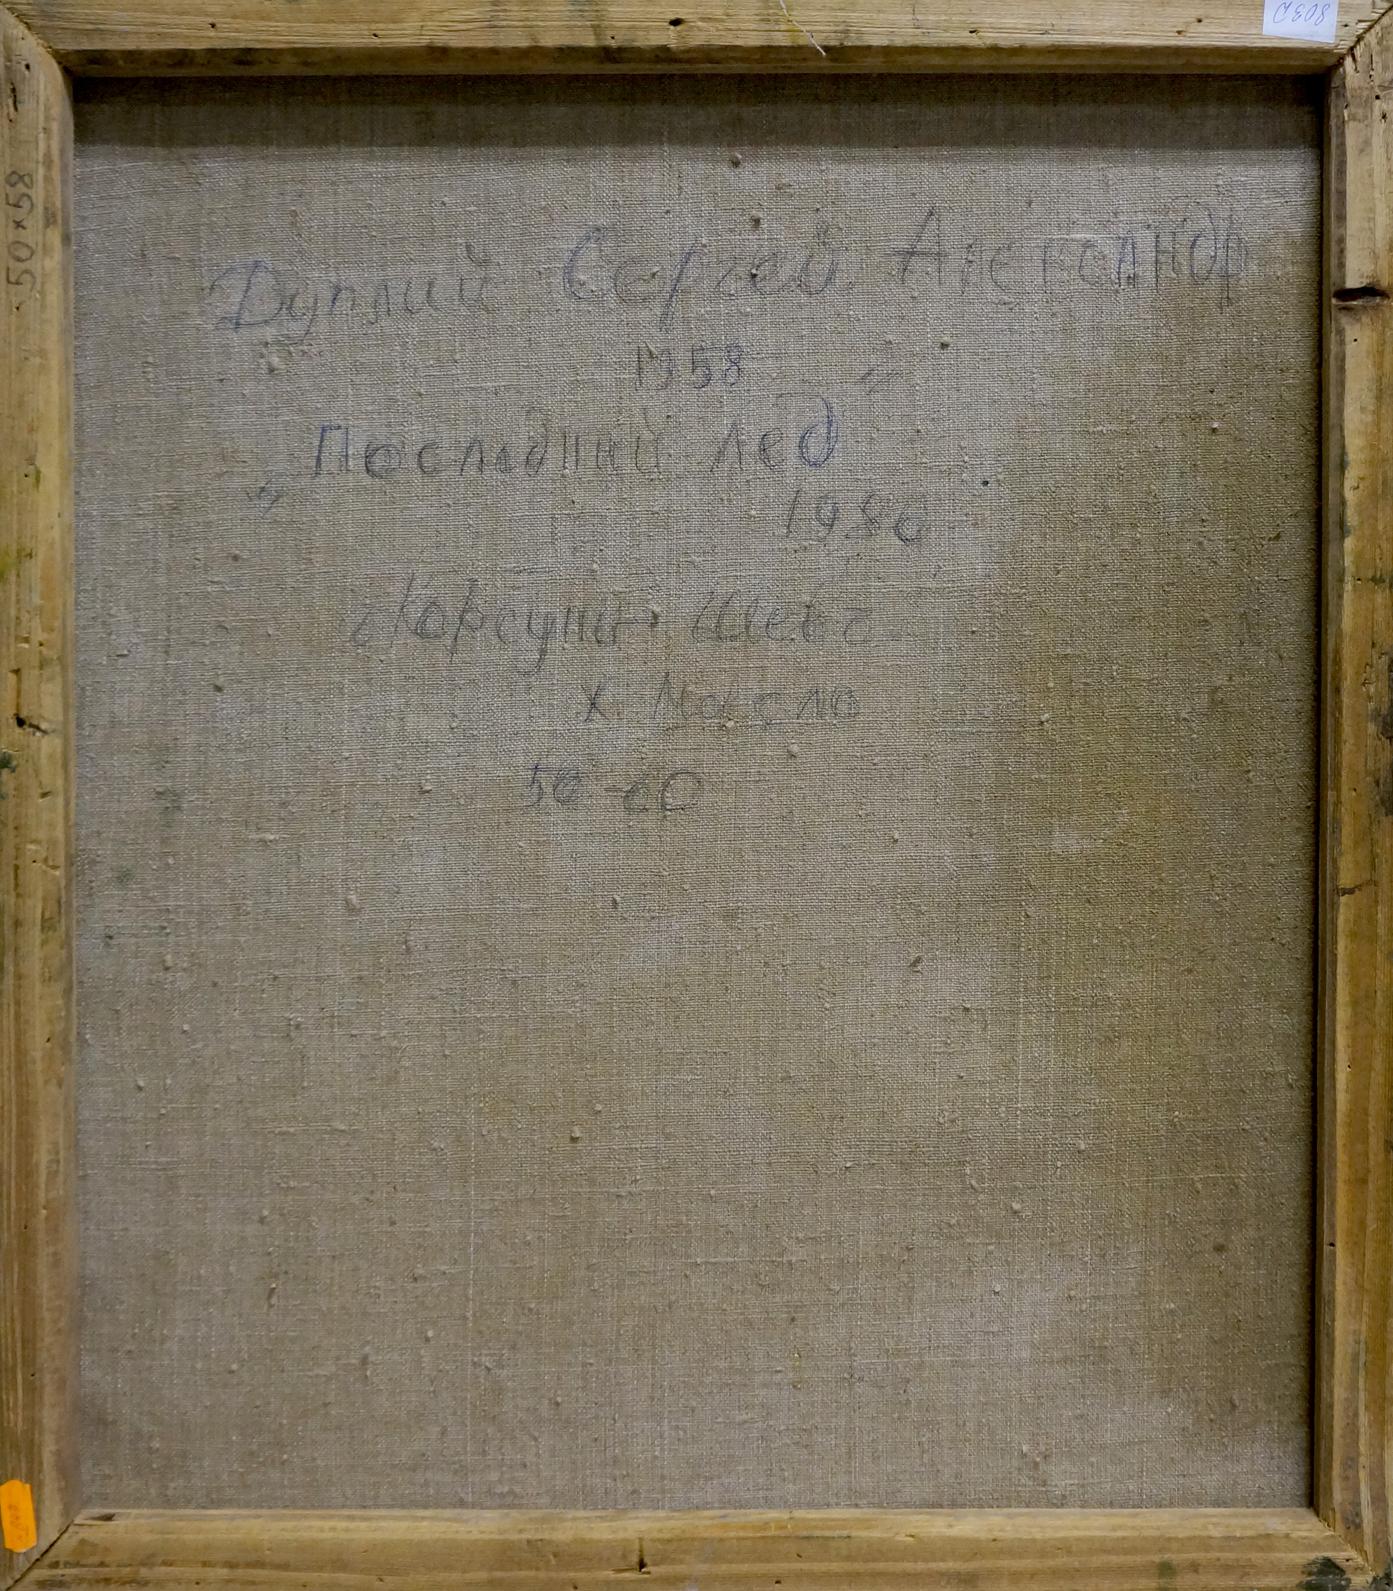 50×58
Дуплий Сергей Александр
1958
„Последний лед”
1980
г Корсунь Шевч
х. Масло
50-60